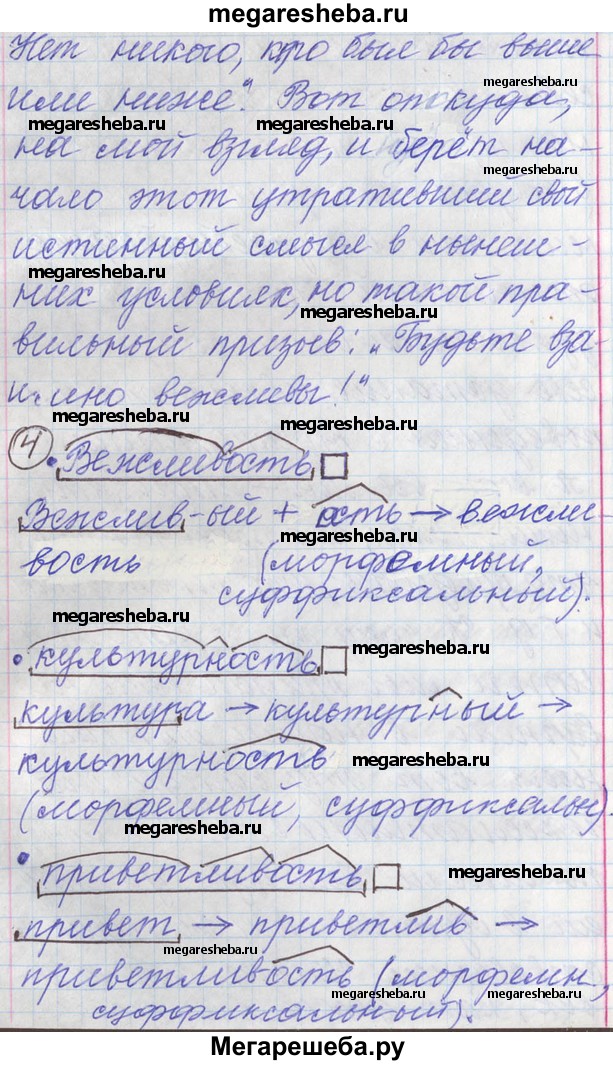 megaresheba.ru
Нет никого, кто был бы выше
megaresheba.ru
или ниже". Вот откуда,
megaresheba.ru megaresheba.ru
на мой взгляд, и берёт на-
чало этот утративший свой
истинный смысл в нынеш-
megaresheba.ru
них условиях, но такой пра-
megaresheba.ru
вильный призыв: „Будьте вза-
имно вежливы!"
megaresheba.ru megaresheba.ru
4 Вежливость
Вежлив-ый + ость → вежли-
megaresheba.ru
вость (морфемный,
суффиксальный).
megaresheba.ru
культурность megaresheba.ru
культура → культурный →
культурность megaresheba.ru
(морфемный, суффиксальн).
megaresheba.ru
приветливость megaresheba.ru
привет → приветлив →
megaresheba.ru megaresheba.ru
приветливость (морфемн.,
megaresheba.ru megaresheba.ru
суффиксальный).
Мегарешеба.ру